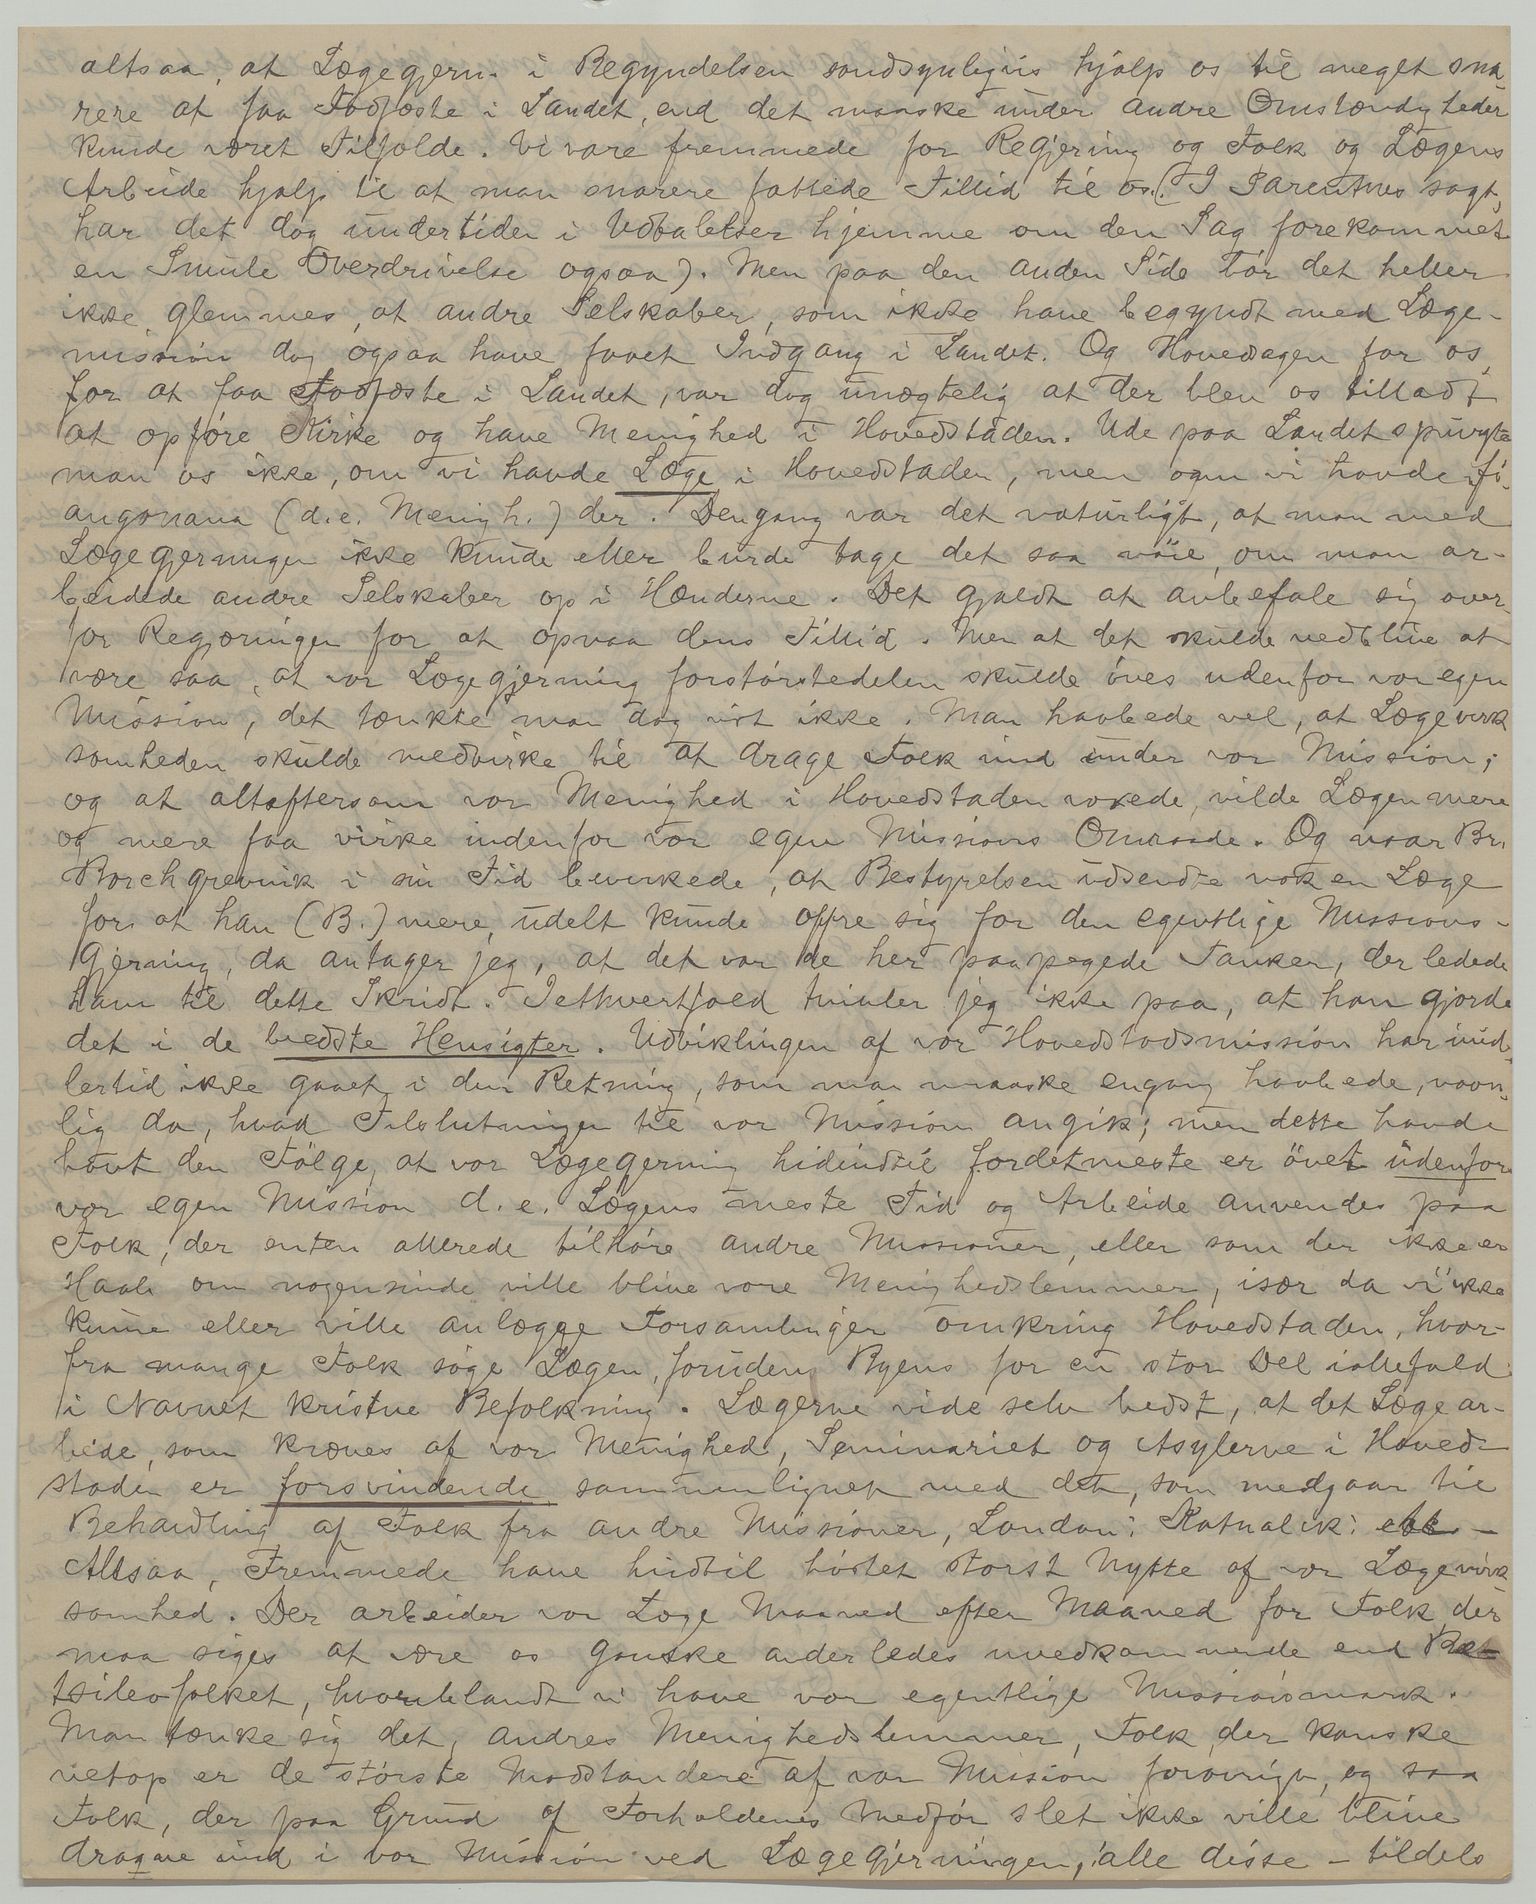 altsaa, at Lægegjern. i Begyndelsen sandsynligvis hjalp os til meget sna
rere at faa Fodfæste i Landet, end det maaske under andre Omstændigheder
kunde været Tilfælde. Vi vare fremmede for Regjering og Folk og Lægens
Arbeide hjalp til at man snarere fattede Tillid til os. (I Parenthes sagt,
har det dog undertiden i Udtalelser hjemme om den Sag forekommet
en Smule Overdrivelse ogsaa). Men paa den anden Side bør det heller
ikke glemmes, at andre Selskaber, som ikke have begyndt med Læge-
mission dog ogsaa have faaet Indgang i Landet. Og Hovedsagen for os,
for at faa Fodfæste i Landet, var dog unægtelig at der blev os tilladt
at opføre Kirke og have Menighed i Hovedstaden. Ude paa Landet spurgte
man os ikke, om vi havde Læge i Hovedstaden, men om vi havde fi-
angonana (d.e. Menigh.) der. Dengang var det naturligt, at man med
Lægegjerningen ikke kunde eller burde tage det saa nøie, om man ar-
beidede andre Selskaber op i Hænderne. Det gjaldt at anbefale sig over
for Regjæringen for at opnaa dens Tillid. Men at det skulde vedblive at
være saa, at vor Lægegjerning forstørstedelen skulde øves udenfor vor egen
Mission, det tænkte man dog vist ikke. Man haabede vel, at Lægevirk
somheden skulde medvirke til at drage Folk ind under vor Mission;
og at alteftersom vor Menighed i Hovedstaden voxede, vilde Lægen mere
og mere faa virke indenfor vor egen Missions Omraade. Og naar Br.
Borchgrevink i sin Tid bevirkede, at Bestyrelsen udsendte nok en Læge
for at han (B.) mere udelt kunde offre sig for den egentlige Missions-
Gjerning, da antager jeg, at det var de her paapegede Tanker, der ledede
ham til dette Skridt. Iethvertfald tvivler jeg ikke paa, at han gjorde
det i de bedste Hensigter. Udviklingen af vor Hovedstadsmission har imid-
lertid ikke gaaet i den Retning, som man maaske engang haabede, navn-
lig da, hvad Tilslutningen til vor Mission angik; men dette havde
havt den Følge, at vor Lægegjerning hidindtil fordetmeste er øvet udenfor
vor egen Mission d.e. Lægens meste Tid og Arbeide anvendes paa
Folk, der enten allerede tilhøre andre Missioner, eller som der ikke er
Haab om nogensinde ville blive vore Menighedslemmer, især da vi ikke
kunne eller ville anlægge Forsamlinger omkring Hovedstaden, hvor-
fra mange Folk søge Lægen, foruden Byens for en stor Del iallefald
i Navnet kristne Befolkning. Lægerne vide selv bedst, at det Læge ar-
beide, som kræves af vor Menighed, Seminariet og Asylerne i Hoved-
staden er forsvindende sammenlignet med det, som medgaar til
Behandling af Folk fra andre Missioner, London: Katholik: etc. -
Altsaa, Fremmede have hidtil høstet størst Nytte af vor Lægevirk
somhed. Der arbeider vor Læge Maaned efter Maaned for Folk, der
maa siges at være os ganske anderledes uvedkommende end Bet-
tsileofolket, hvoriblandt vi have vor egentlige Missionsmark.
Man tænke sig det, andres Menighedslemmer, Folk, der kanske
netop er de største Modstandere af vor Mission forøvrigt, og saa
Folk, der paa Grund af Forholdenes Medfør slet ikke ville blive
dragne ind i vor Mission ved Lægegjerningen, alle disse - tildels